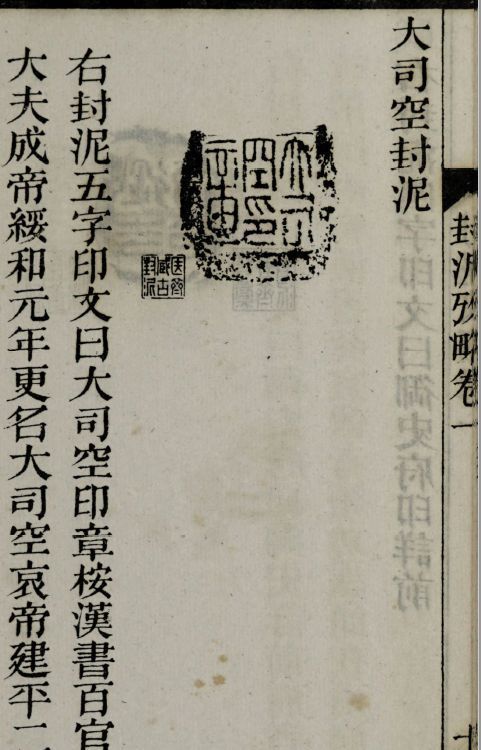 封泥攷略卷一
大司空封泥
大司空印章
藏古
封泥
右封泥五字印文曰大司空印章桉漢書百官
大夫成帝綏和元年更名大司空哀帝建平二